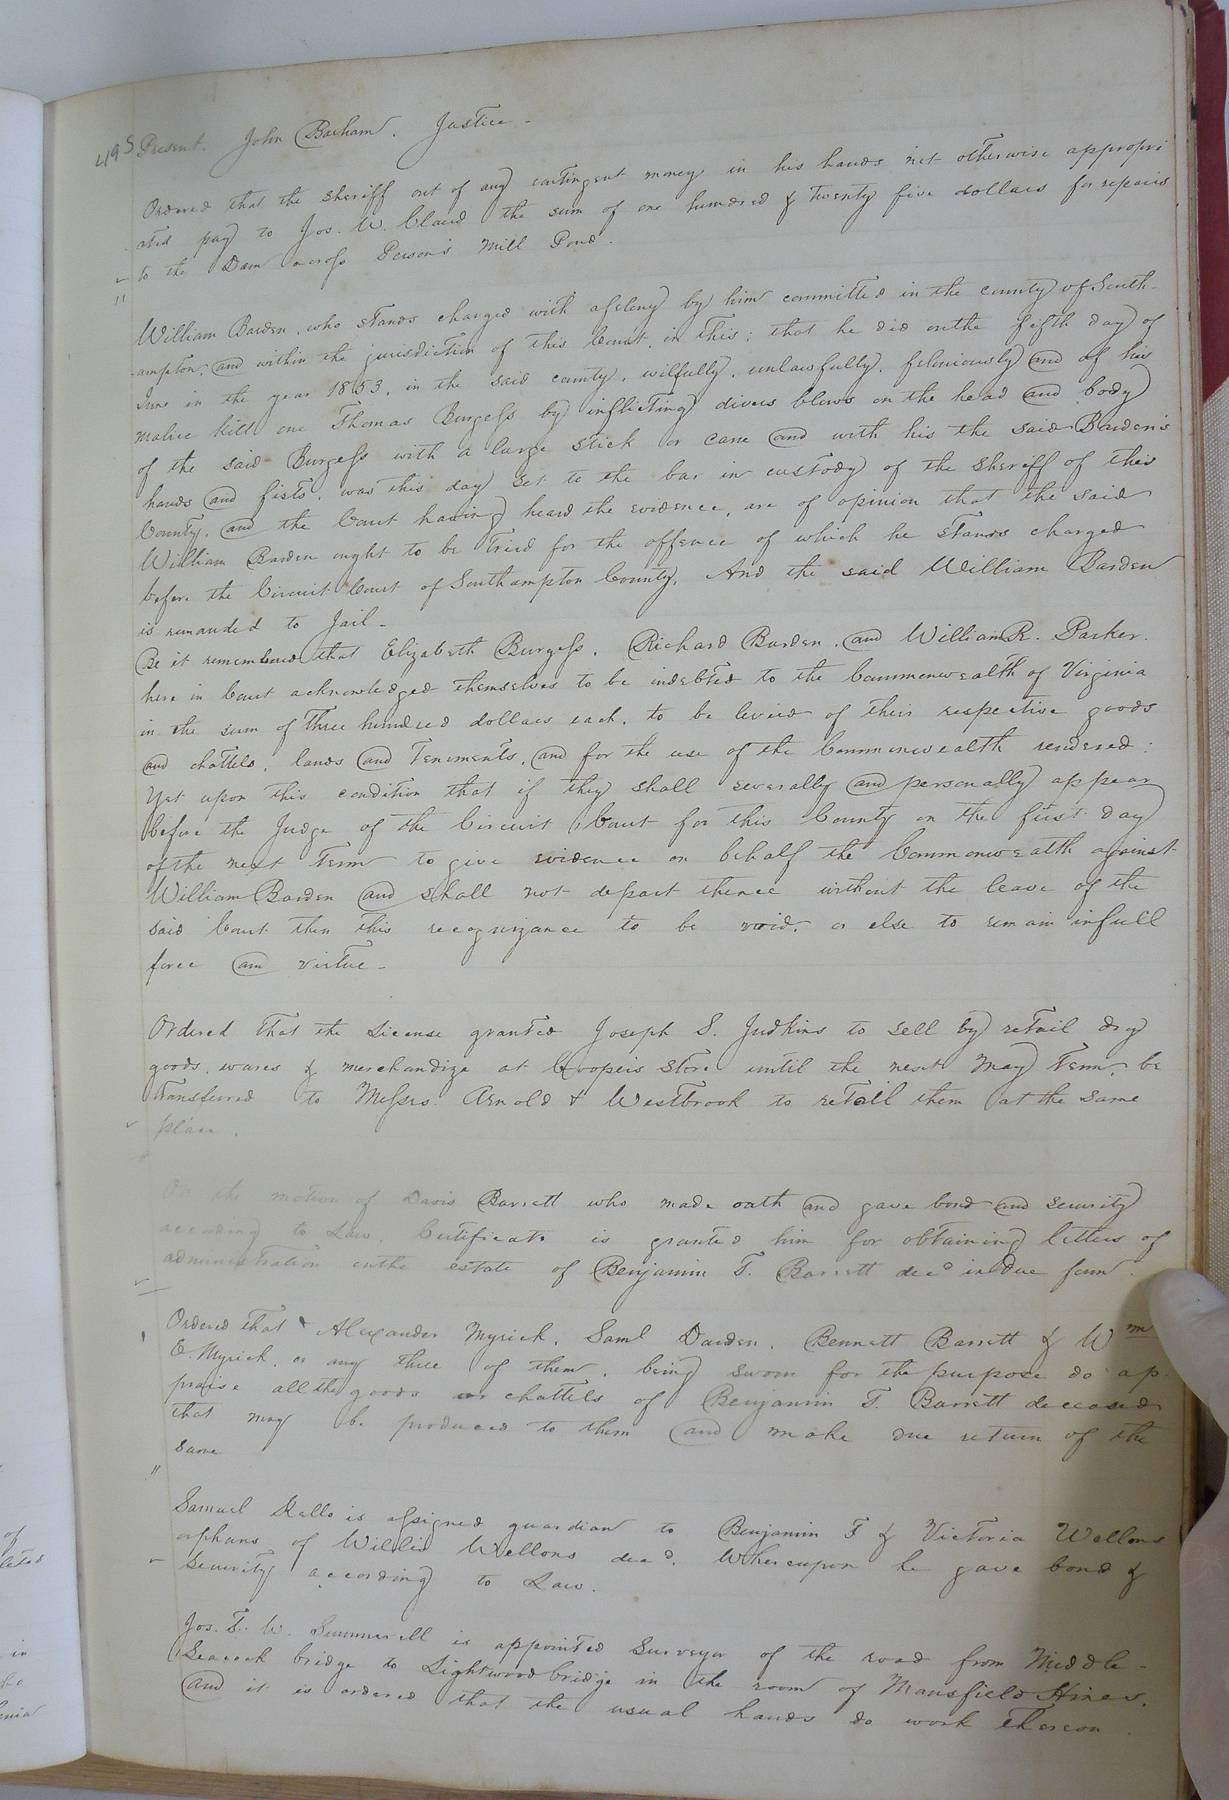 495 Present. John Barham. Justice.
Ordered that the sheriff out of any contingent money in his hands not otherwise appropri
ated pay to Jos. W. Claud the sum of one hundred & twenty five dollars for repairs
to the Dam across Person's Mill Pond.
William Barden, who stands charged with a felony by him committed in the county of South-
ampton, and within the jurisdiction of this Court, in this; that he did on the fifth day of
June in the year 1853, in the said county, wilfully, unlawfully, feloniously and of his
malice kill one Thomas Burgess by inflicting divers blows on the head and body
of the said Burgess with a large stick or cane and with his the said Barden's
hands and fists, was this day set to the bar in custody of the Sheriff of this
County, and the Court having heard the evidence, are of opinion that the said
William Barden ought to be tried for the offence of which he stands charged
before the Circuit Court of Southampton County. And the said William Barden
is remanded to Jail.
Be it remembered that Elizabeth Burgess, Richard Barden, and William R. Parker.
here in Court acknowledged themselves to be indebted to the Commonwealth of Virginia
in the sum of three hundred dollars each, to be levied of their respective goods
and chattels, lands and tenements, and for the use of the Commonwealth rendered:
Yet upon this condition that if they shall severally and personally appear
before the Judge of the Circuit Court for this County on the first day
of the next Term to give evidence on behalf the Commonwealth against
William Barden and shall not depart thence without the leave of the
said Court then this recognizance to be void, or else to remain in full
force and virtue.
Ordered that the License granted Joseph S. Judkins to sell by retail dry
goods, wares & merchandize at Cooper's Store until the next May Term, be
transferred to Messrs. Arnold & Westbrook to retail them at the same
place.
On the motion of Davis Barrett who made oath and gave bond and security
according to Law, Certificate is granted him for obtaining letters of
administration on the estate of Benjamin T. Barrett decd in due form.
Ordered that Alexander Myrick, Saml Darden, Bennett Barrett & Wm
E. Myrick, or any three of them, being sworn for the purpose do ap
praise all the goods or chattels of Benjamin T. Barrett deceased
that may be produced to them and make due return of the
same
Samuel Kello is assigned guardian to Benjamin F & Victoria Wellons
orphans of Willie Wellons decd. Whereupon he gave bond &
security according to Law.
Jos. T. W. Summerell is appointed Surveyor of the road from Middle-
Seacock bridge to Lightwood bridge in the room of Mansfield Hines.
and it is ordered that the usual hands do work thereon.